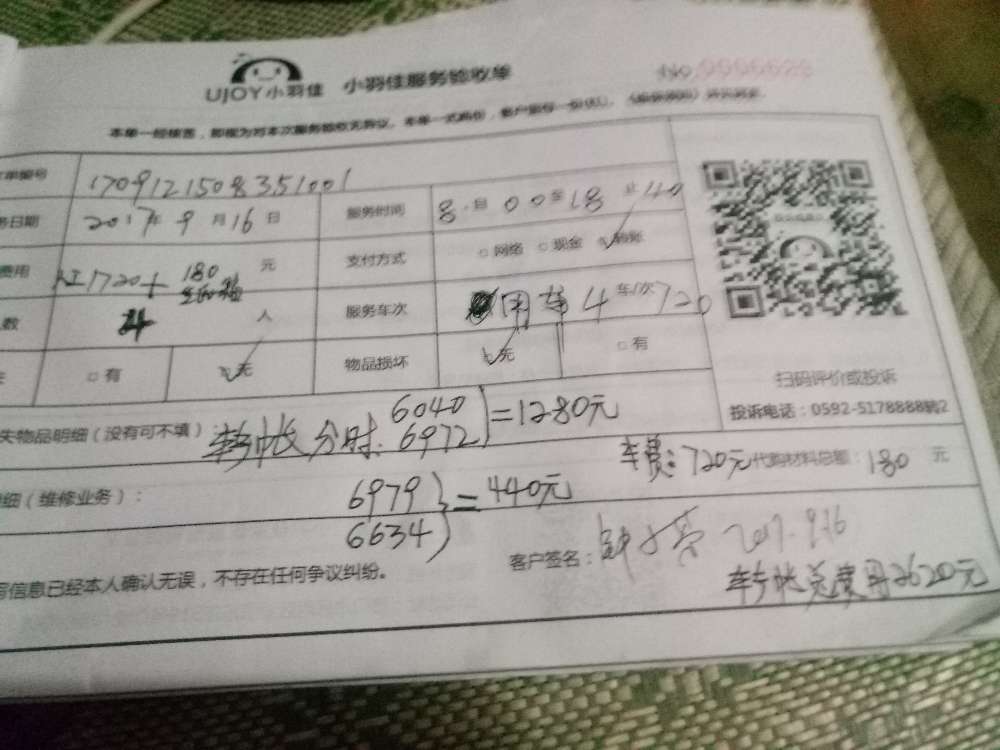 UJOY小羽佳 小羽佳服务验收单
No.
本单一经签署，即视为对本次服务验收无异议。本单一式两份，客户留存一份
单编号 1709121508351001
务日期 2017年9月16日 服务时间 8时00至18止40
费用 人工1720+180 元 支付方式 网络 现金 转账
数 4 人 服务车次 用车4车/次720
有 无 物品损坏 无 有
扫码评价或投诉
投诉电话：0592-5178888转2
失物品明细（没有可不填） 转帐分时: 6040
6972 =1280元
细（维修业务）： 6979
6634 =440元
车费：720元代购材料总额：180元
客户签名： 2017.9.16
写信息已经本人确认无误，不存在任何争议纠纷。
转帐总费用2620元